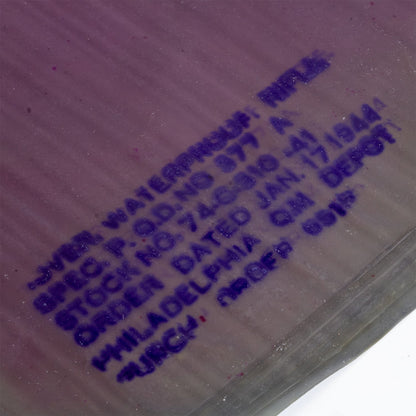 COVER WATERPROOF: RIFLE
SPEC. P.Q.D. NO 377 A
STOCK NO. 74C-310-41
ORDER DATED JAN. 17, 1944
PHILADELPHIA QM DEPOT
PURCH. ORDER